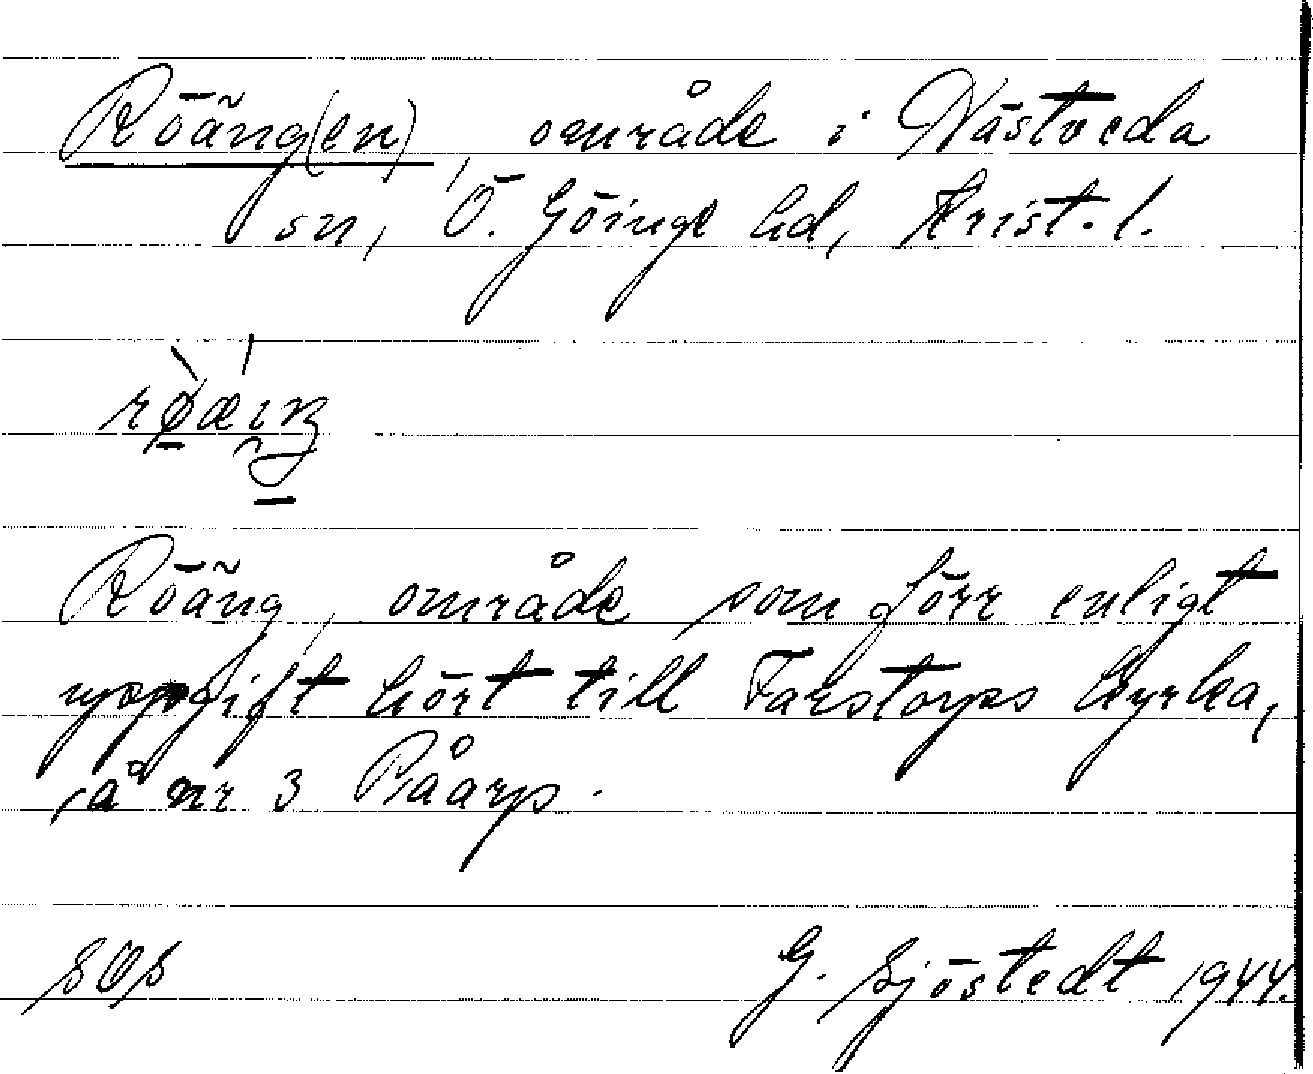 Röäng(en), område i Västveda
sn, Ö. Göinge hd, Krist. l.
Röäng, område som förr enligt
uppgift hört till Farstorps kyrka,
på nr 3 Påarp.
SOS G. Sjöstedt 1944.